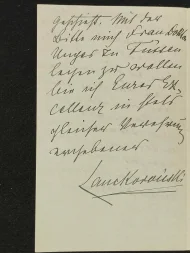 geschieht. Mit der
Bitte mich Frau
Unger zu Füssen
legen zu wollen
bin ich Eurer Ex-
cellenz in stets
gleicher Verehrung
ergebener
Lanckoroński